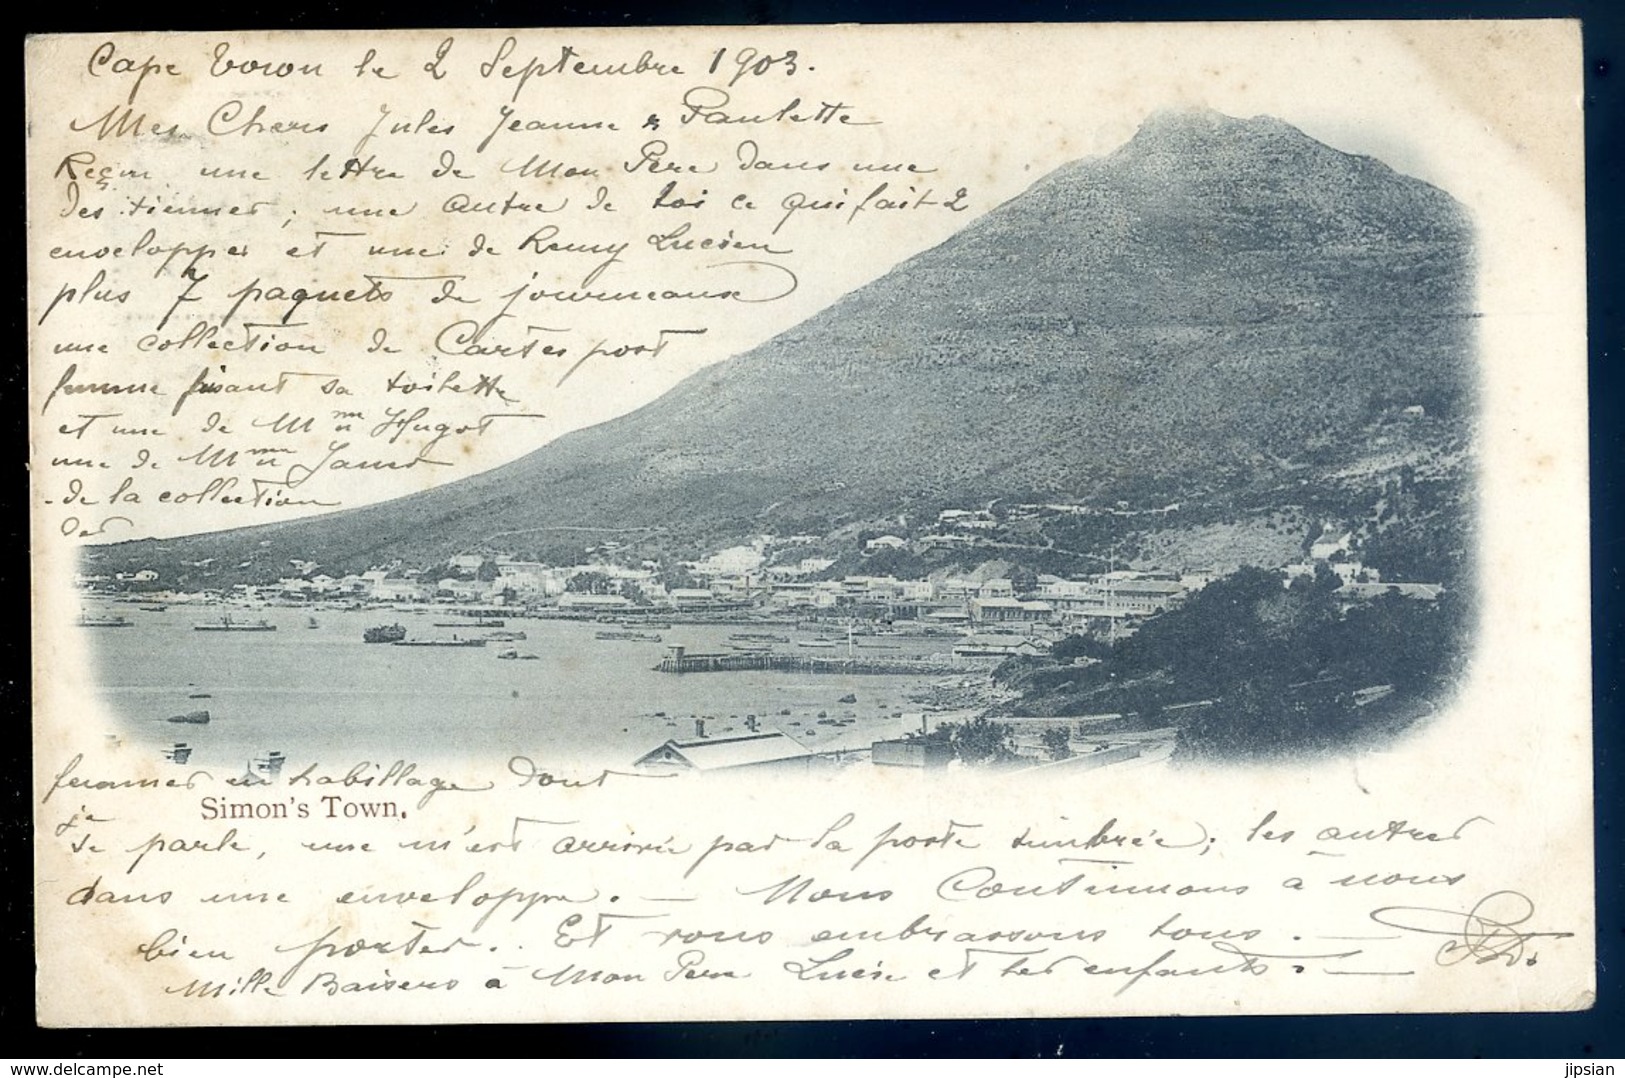 Cape Town le 2 Septembre 1903.
Mes Chers Jules Jeanne & Paulette
Reçu une lettre de Mon Père dans une
des tiennes ; une autre de toi ce qui fait 2
enveloppes et une de Remy Lucien
plus 7 paquets de journeaux
une collection de Cartes post
femme faisant sa toilette
et une de Mme Hugot
une de Mme
de la collection
des
femmes en habillage dont
Simon's Town.
je
te parle, une m'est arrivée par la poste timbrée ; les autres
dans une enveloppe. — Nous Continuons à nous
bien porter. Et vous embrassons tous. —
Mille Baisers à Mon Père Lucie et les enfants. —
jipsian